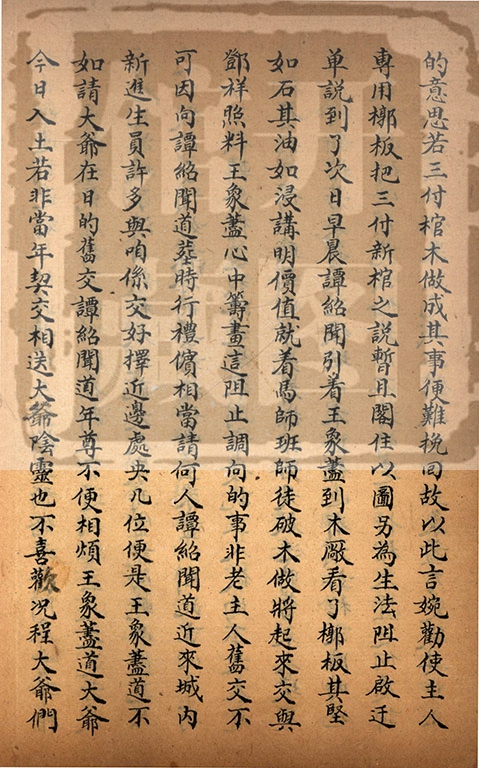 的意思若三付棺木做成其事便難挽回故以此言婉勸使主人
專用槨板把三付新棺之說暫且閣住以圖另為生法阻止啟迁
单說到了次日早晨譚紹聞引着王象藎到木廠看了槨板其堅
如石其油如浸講明價值就着馬師班師徒破木做將起來交與
鄧祥照料王象藎心中籌畫這阻止調向的事非老主人舊交不
可因向譚紹聞道塟時行禮儐相當請何人譚紹聞道近來城內
新進生員許多與咱係交好擇近邊處央几位便是王象藎道不
如請大爺在日的舊交譚紹聞道年尊不便相煩王象藎道大爺
今日入土若非當年契交相送大爺陰靈也不喜歡况程大爺們